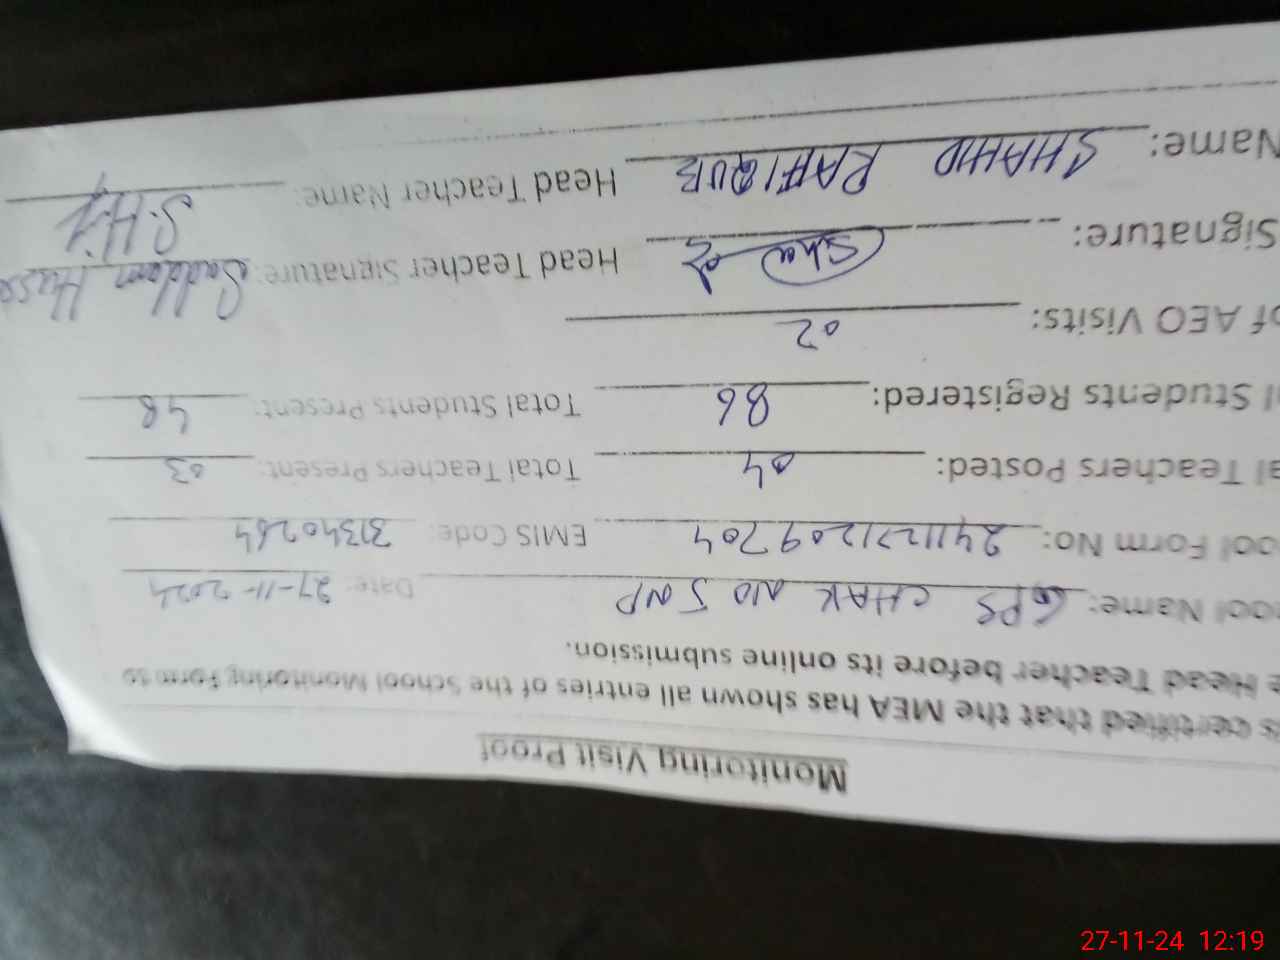 Monitoring Visit Proof
s certified that the MEA has shown all entries of the School Monitoring Form to
e Head Teacher before its online submission.
ool Name: GPS CHAK NO 5 NP Date: 27-11-2024
ool Form No: 2411271209704 EMIS Code: 31340264
al Teachers Posted: 04 Total Teachers Present: 03
l Students Registered: 86 Total Students Present: 48
of AEO Visits: 02
Signature: Head Teacher Signature: Saddam Huss
Name: SHAHID RAFIQUE Head Teacher Name:
27-11-24 12:19